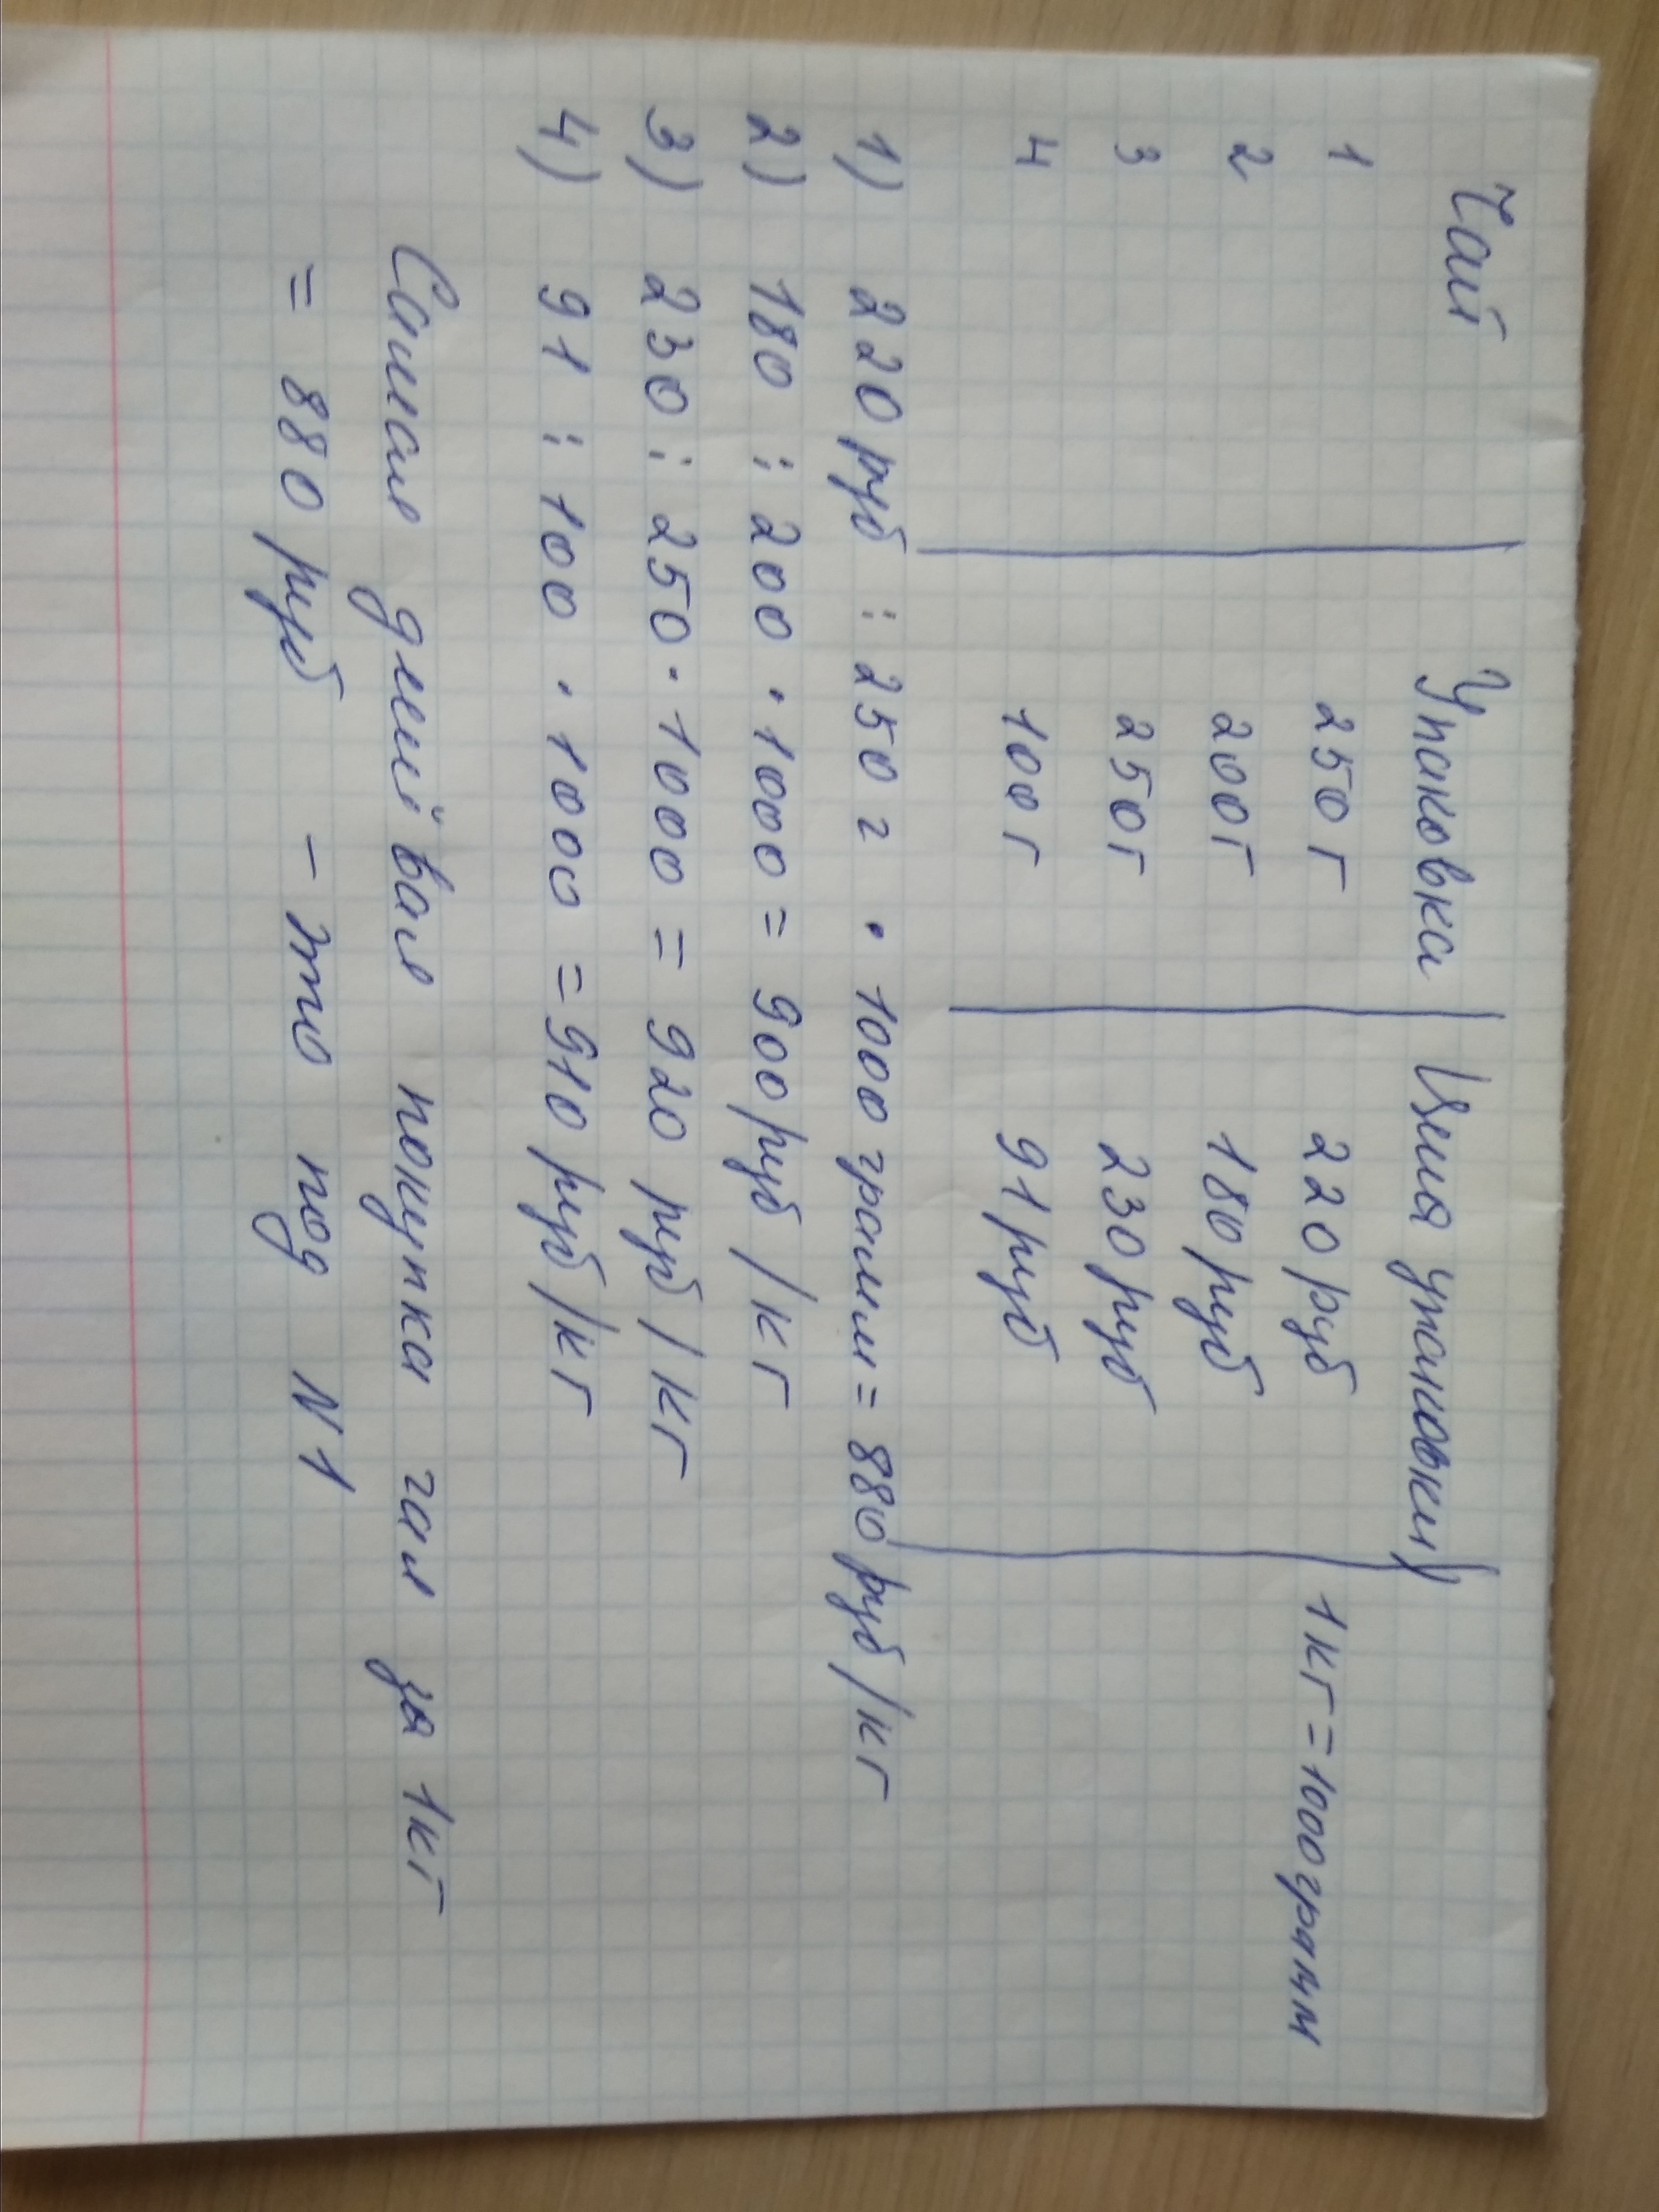 Чай Упаковка Цена упаковки
1 250 г 220 руб 1 кг = 1000 грамм
2 200 г 180 руб
3 250 г 230 руб
4 100 г 91 руб
1) 220 руб : 250 г · 1000 грамм = 880 руб/кг
2) 180 : 200 · 1000 = 900 руб/кг
3) 230 : 250 · 1000 = 920 руб/кг
4) 91 : 100 · 1000 = 910 руб/кг
Самая дешёвая покупка чая за 1 кг
= 880 руб - это под N 1